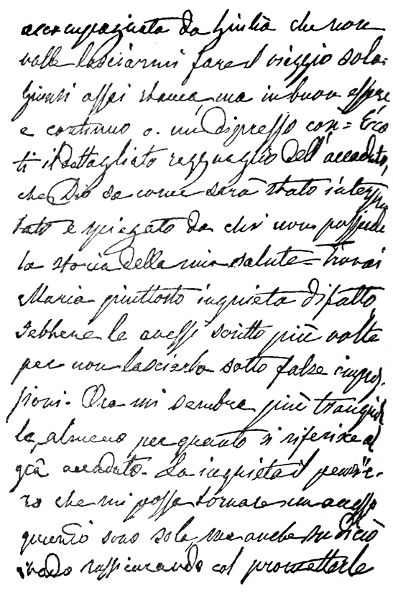 accompagnata da Giulia che non
volle lasciarmi fare il viaggio sola.
Giunsi assai stanca ma in buon essere
e continuo a = Ecco
ti il dettagliato ragguaglio dell'accaduto,
che Dio sa come sarà stato interpre
tato e spiegato da chi non possiede
la storia della mia salute = Trovai
Maria piuttosto inquieta difatto
sebbene le avessi scritto più volte
per non lasciarla sotto false impres
sioni. Ora mi sembra più tranquil
la, almeno per quanto si riferisce al
già accaduto. La inquieta il pensie
ro che mi possa tornare un accesso
quando sono sola, ma anche su di ciò
vado rassicurando col prometterle